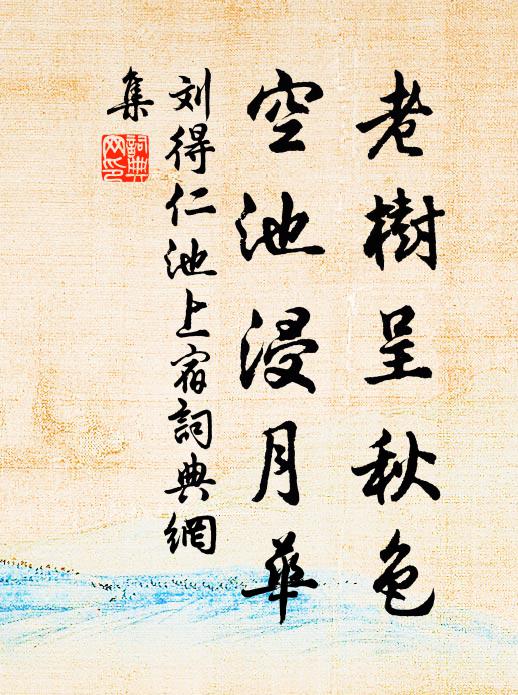 老樹呈秋色
空池浸月華
刘得仁池上宿詞典網
集
詞典
网印